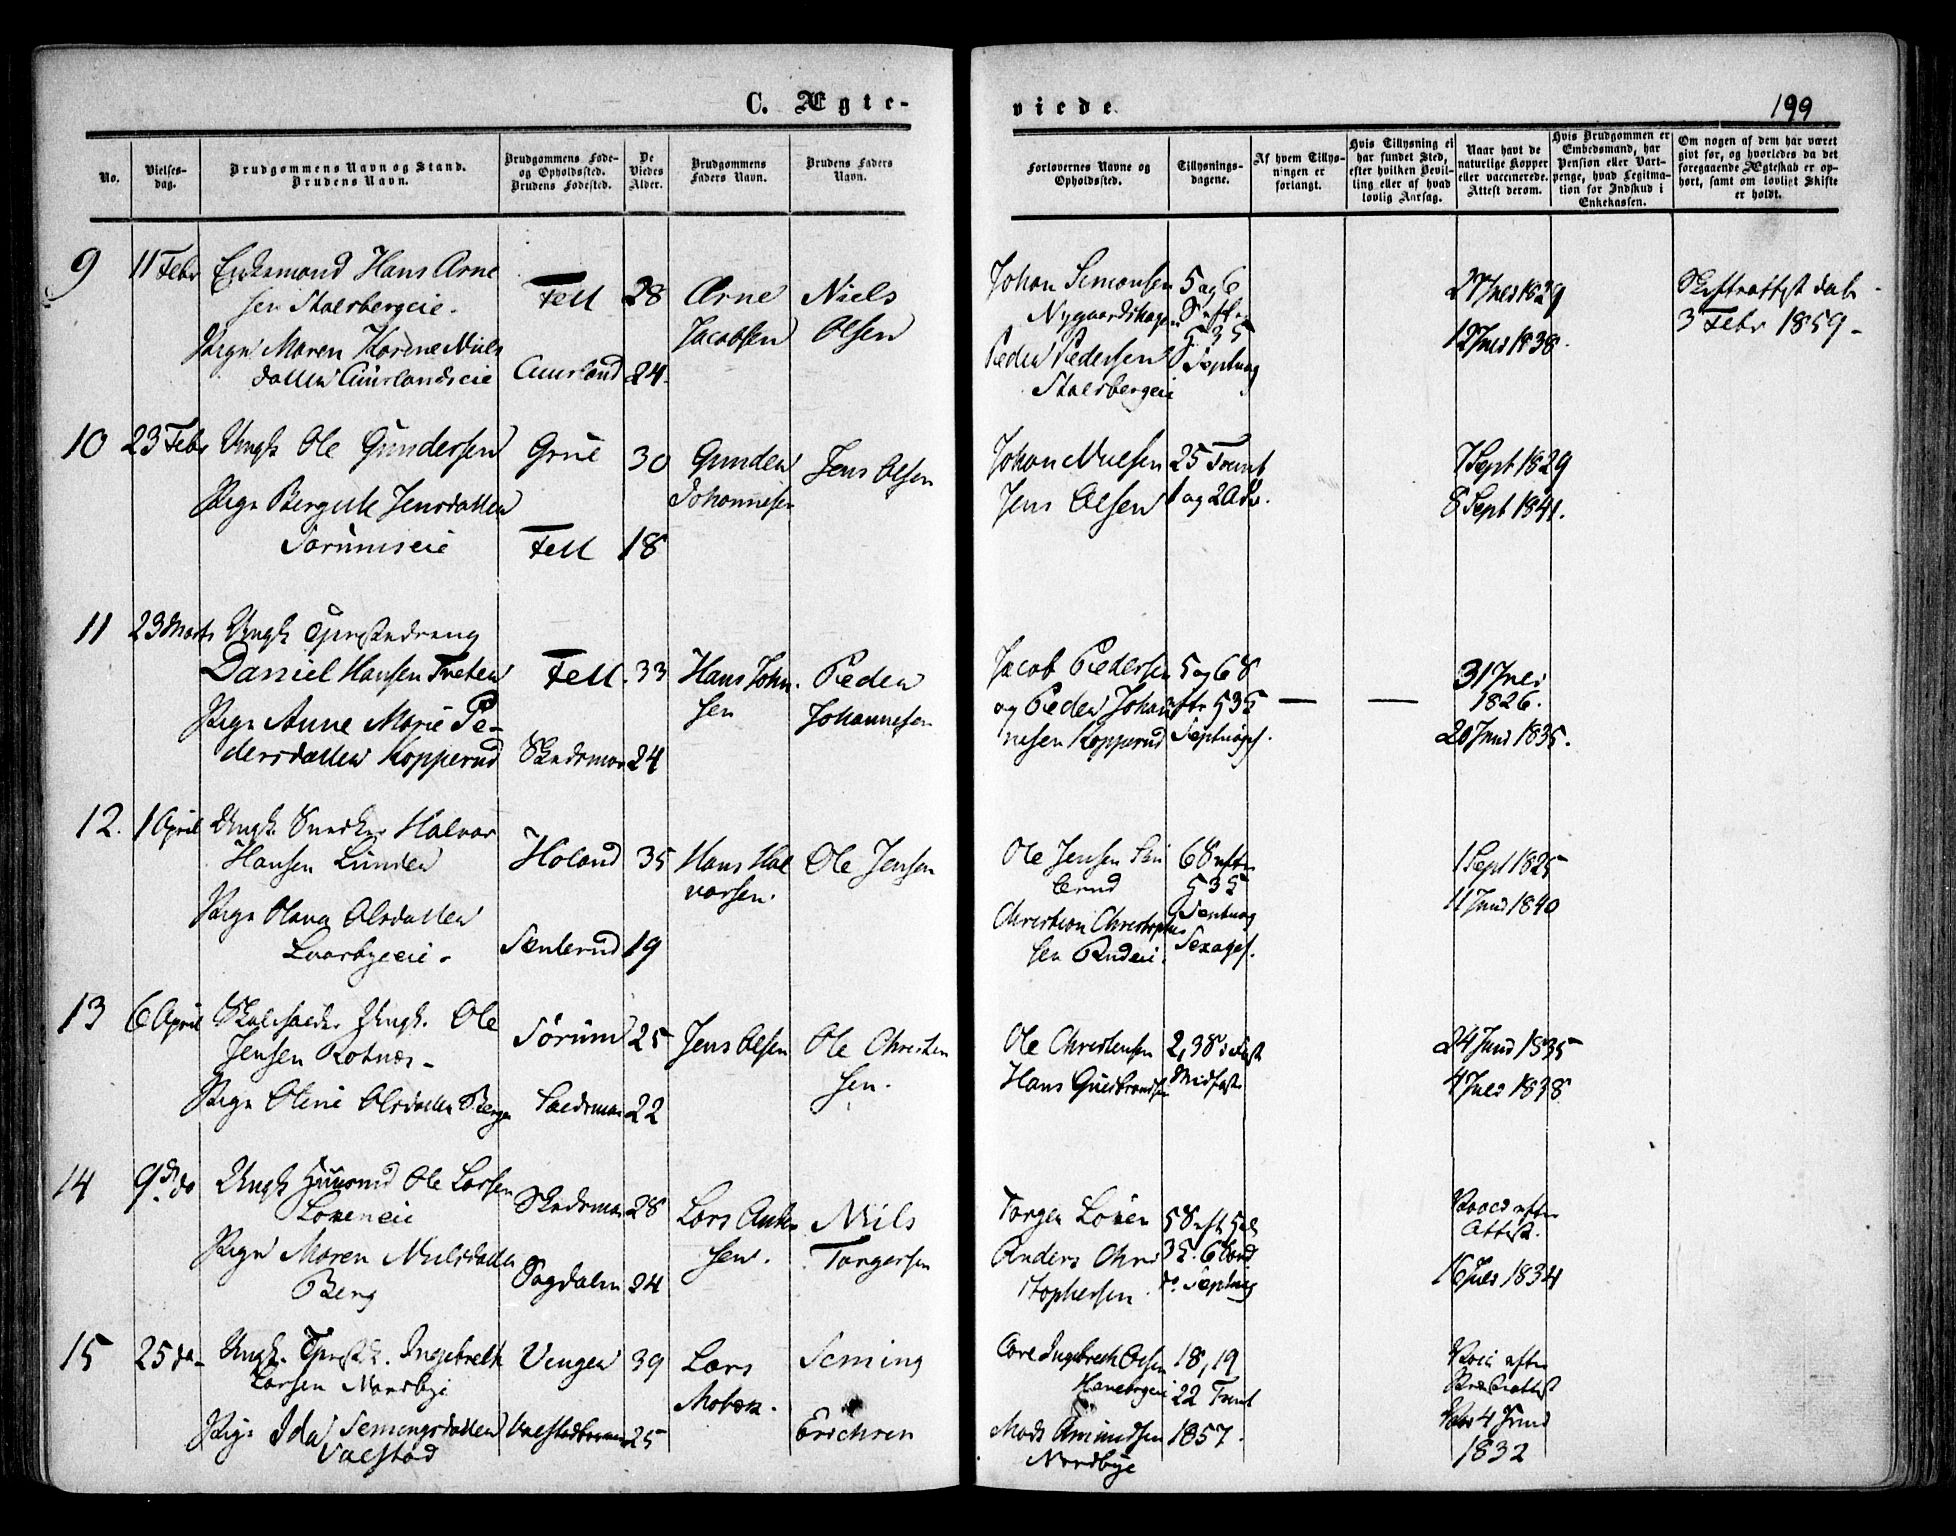 C. Ægte-
viede.
199
No.
Vielses-
dag.
Brudgommens Navn og Stand.
Brudens Navn.
Brudgommens Føde-
og Opholdssted.
Brudens Fødested.
De
Viedes
Alder.
Brudgommens
Faders Navn.
Brudens Faders
Navn.
Forlovernes Navne og
Opholdssted.
Tillysnings-
dagene.
Af hvem Tillys-
ningen er
forlangt.
Hvis Tillysning ei
har fundet Sted,
efter hvilken Bevil-
ling eller af hvad
lovlig Aarsag.
Naar havt de
naturlige Kopper
eller vaccinerede.
Attest derom.
Hvis Brudgommen er
Embedsmand, har
Pension eller Vart-
penge, hvad Legitima-
tion for Indskud i
Enkekassen.
Om nogen af dem har været
gift før, og hvorledes da det
foregaaende Ægteskab er op-
hørt, samt om lovligt Skifte
er holdt.
9
11 Febr
Enkemand Hans Arne
sen Stalsbergeie.
Pige Maren Karine Niels
datter Auurlandseie
Fell 28
Auurland 24.
Arne
Jacobsen
Niels
Olsen
Johan Simonsen
Nygaardshagen
Peder Pedersen
Stalsbergeie
5 og 6
535
Septuag
27 Juli 1829
12 Juli 1838.
Skifteattest dat
3 Febr 1859-
10
23 Febr
Ungk Ole Gundersen
Pige Bergitte Jensdatter
Sørumseie
Grue 30
Fell 18
Gunder
Johannesen
Jens Olsen
Johan Nielsen
Jens Olsen
25 Trinit
1 og 2 Adv.
7 Sept 1829
8 Sept 1841.
11
23 Marts
Ungk Tjenestedreng
Daniel Hansen Tveter
Pige Anne Marie Pe-
dersdatter Kopperud
Fell. 33
Skedsmoe 24
Hans Johan
sen
Peder
Johannesen
Jacob Pedersen
og Peder Johan
nesen Kopperud
5 og 6 S
eftr 535
Septuages.
31 Juli
1826.
20 Juni 1835.
12.
1 April
Ungk. Snedker Halvor
Hansen Lunder
Pige Olava Olsdatter
Lvarbyeeie.
Høland 35
19
Hans Hal
vorsen.
Ole Jensen
Ole Jensen
Christian Christophe
sen Rudeie.
6 S efter
535
Septuag
Sexages.
1 Sept 1825
11 Juni 1840
13
6 April
Ungk. Ole
Jensen Rotnæs-
Pige Oline Olsdatter Berge
Sørum 25
Skedsmoe 22
Jens Olsen
Ole Christen
sen.
Ole Christensen
Hans Guldbrandsen
2, 3 S i Fast
Midfaste
24 Juni 1835
4 Juli 1838
14
9de do
Ungk Huusmd Ole Larsen
Løkeneie
Pige Maren Nielsdatter
Berg
Skedsmoe 28
Sogdalen 24
Lars Anders
sen.
Niels
Torgersen
Torger Løken
Anders Chri
stophersen
5 S eft
do Septuag
Vacc efter
Attest.
16 Juli 1834
15
25 do-
Ungk. Ingebreth
Larsen Nordbye
Pige Ida Semingsdatter
Valstad
Vinger 39
25
Lars
Mobæk.
Seming
Erichsen
Carl Ingebrecht Olsen
Haneborgeie
Mads Amundsen
Nordbye
18, 19
22 Trinit
1857.
Vacc efter
Præsteattest
Vac 4 Juni
1832